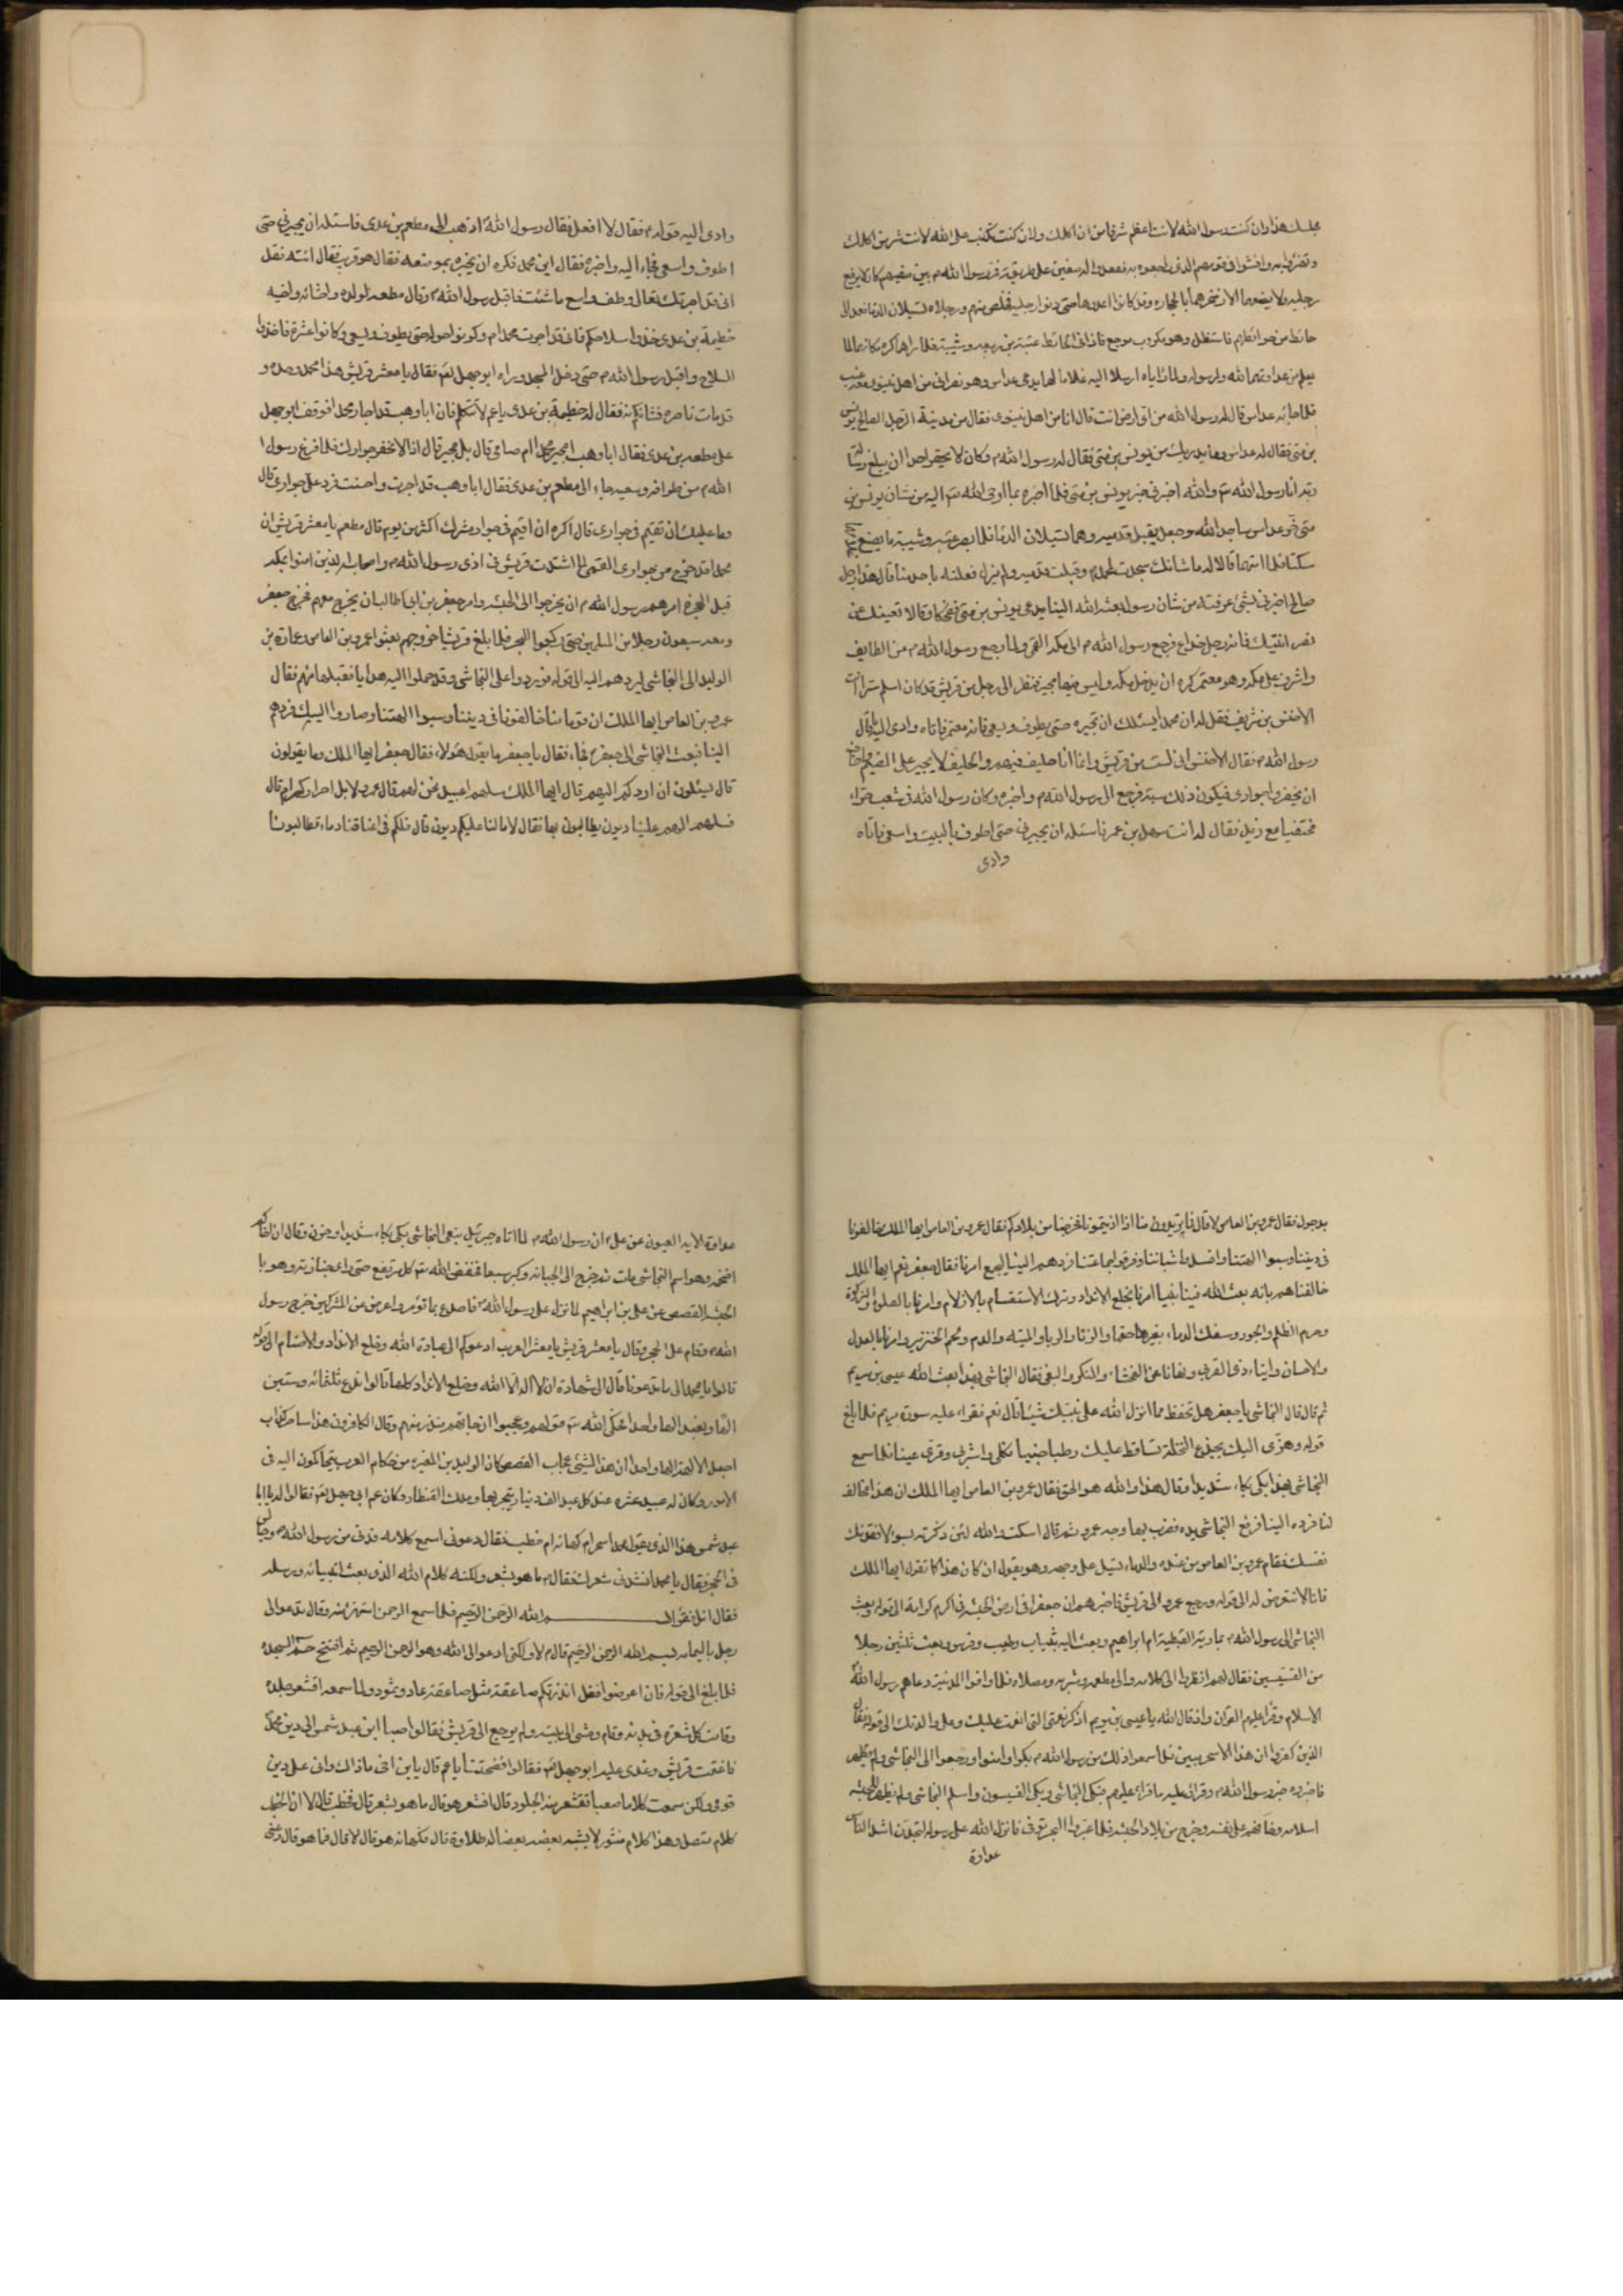 مجلسك هذا وان كنت رسول الله لانت اعظم شرفا من ان اكلمك ولان كنت تكذب على الله لانت شر من اكلمك
رجليه ولا يضعهما الا رضخوهما بالحجارة وقد كانوا اعدوها حتى دموا رجليه فخلص منهم ورجلاه تسيلان الدما فعمد الى
حائط من حوائطهم فاستظل وهو مكروب موجع فاذا فى الحائط عتبة بن ربيعه وشيبة فلما راهما كره مكانهما لما
يعلم من عداوتهما لله ولرسوله ولما راياه ارسلا اليه غلاما لهما يدعى عداس وهو نصرانى من اهل نينوى معه عنب
فلما جائه عداس قال له رسول الله من اى ارض انت قال انا من اهل نينوى فقال من مدينة الرجل الصالح يونس
بن متى فقال له عداس وما يدريك من يونس بن متى فقال له رسول الله م وكان لا يحقر احدا ان يبلغ رسالة
ربه انا رسول الله والله اخبرنى خبر يونس بن متى فلما اخبره بما اوحى الله اليه من شان يونس بن
متى خر عداس ساجدا لله وجعل يقبل قدميه وهما تسيلان الدما فلما بصر عتبه وشيبة ما يصنع غلامهما
سكتا فلما اتاهما قالا له ما شانك سجدت لمحمد وقبلت قدميه ولم نرك فعلته باحد منا قال هذا رجل
صالح اخبرنى بشئ عرفته من شان رسول بعثه الله الينا يدعى يونس بن متى فضحكا وقالا لا تفتننك عن
نصرانيتك فانه رجل خداع فرجع رسول الله م الى مكه القمى ولما رجع رسول الله م من الطايف
واشرف على مكه وهو معتمر كره ان يدخل مكه وليس فيها مجير فنظر الى رجل من قريش قد كان اسلم سرا ائت
الاخنس بن شريف فقل له ان محمدا يسئلك ان تجيره حتى يطوف ويسعى فانه معتمر فاتاه وادى اليه ما قال
رسول الله م فقال الاخنس انى لست من قريش وانما انا حليف فيهم والحليف لا يجير على الصميم واخاف
ان يخفروا جوارى فيكون ذلك سبة فرجع الى رسول الله م واخبره وكان رسول الله فى شعب حراء
مختفيا مع زيد فقال له ائت سهل بن عمر فاسئله ان يجيرنى حتى اطوف بالبيت واسعى فاتاه
وادى
وادى اليه قوله م فقال لا افعل فقال رسول الله اذهب الى مطعم بن عدى فاسئله ان يجيرنى حتى
اطوف واسعى فجاء اليه واخبره فقال اين محمد فكره ان يخبره بموضعه فقال هو قريب فقال ائته فقل
انى قد اجرتك فتعال وطف واسع ما شئت فاقبل رسول الله وقال مطعم لولده واختانه واخيه
طعيمة بن عدى خذوا سلاحكم فانى قد اجرت محمدا م وكونوا حوله حتى يطوف ويسعى وكانوا عشرة فاخذوا
السلاح واقبل رسول الله م حتى دخل المسجد وراه ابو جهل فقال يا معشر قريش هذا محمد وحده و
قد مات ناصره فشانكم به فقال له طعيمة بن عدى يا عم لا تتكلم فان ابا وهب قد اجار محمدا فوقف ابو جهل
على مطعم بن عدى فقال ابا وهب امجير محمدا ام صابى قال بل مجير قال اذا لا نخفر جوارك فلما فرغ رسول
الله م من طوافه وسعيه جاء الى مطعم بن عدى فقال ابا وهب قد اجرت واحسنت فرد على جوارى قال
وما عليك ان تقيم فى جوارى قال اكره ان اقيم فى جوار مشرك اكثر من يوم قال مطعم يا معشر قريش ان
محمدا قد خرج من جوارى القمى لما اشتدت قريش فى اذى رسول الله م واصحابه الذين امنوا بمكه
قبل الهجرة امرهم رسول الله م ان يخرجوا الى الحبشه وامر جعفر بن ابى طالب ان يخرج معهم فخرج جعفر
ومعه سبعون رجلا من المسلمين حتى ركبوا البحر فلما بلغ قريشا خروجهم بعثوا عمرو بن العاص وعمارة بن
الوليد الى النجاشى ليردهم اليه الى قوله فوردوا على النجاشى وقد حملوا اليه هدايا فقبلها منهم فقال
عمرو بن العاص ايها الملك ان قوما منا خالفونا فى ديننا وسبوا الهتنا وصاروا اليك فردهم
الينا فبعث النجاشى الى جعفر فجاء فقال يا جعفر ما يقول هؤلاء فقال جعفر ايها الملك وما يقولون
قال يسئلون ان اردكم اليهم قال ايها الملك سلهم اعبيد نحن لهم قال عمرو لا بل احرار كرام قال
فسلهم الهم علينا ديون يطالبون بها فقال لا ما لنا عليكم ديون قال فلكم فى اعناقنا دماء تطالبونا
بدخول فقال عمرو بن العاص لا قال فما تريدون منا اذيتمونا فخرجنا من بلادكم فقال عمرو بن العاص ايها الملك خالفونا
فى ديننا وسبوا الهتنا وافسدوا شباننا وفرقوا جماعتنا فردهم الينا ليجمع امرنا فقال جعفر نعم ايها الملك
خالفناهم بانه بعث الله فينا نبيا امرنا بخلع الانداد وترك الاستقسام بالازلام وامرنا بالصلوة والزكوة
وحرم الظلم والجور وسفك الدماء بغير حقها والزنا والربا والميته والدم ولحم الخنزير وامرنا بالعدل
والاحسان وايتاء ذى القربى ونهانا عن الفحشاء والمنكر والبغى فقال النجاشى بهذا بعث الله عيسى بن مريم
ثم قال النجاشى يا جعفر هل تحفظ مما انزل الله على نبيك شيئا قال نعم فقراء عليه سورة مريم فلما بلغ
قوله وهزى اليك بجذع النخلة تساقط عليك رطبا جنيا فكلى واشربى وقرى عينا فلما سمع
النجاشى بهذا بكى بكاء شديدا وقال هذا والله هو الحق فقال عمرو بن العاص ايها الملك ان هذا مخالف
لنا فرده الينا فرفع النجاشى يده فضرب بها وجه عمرو ثم قال اسكت والله لئن ذكرته بسوء لافقدنك
نفسك فقام عمرو بن العاص من عنده والدماء تسيل على وجهه وهو يقول ان كان هذا كما تقول ايها الملك
فانا لا نتعرض له الى قوله ورجع عمرو الى قريش فاخبرهم ان جعفرا فى ارض الحبشه فى اكرم كرامة الى قوله وبعث
النجاشى الى رسول الله م بمارية القبطية ام ابراهيم وبعث اليه بثياب وطيب وفرس وبعث ثلثين رجلا
من القسيسين فقال لهم انظروا الى كلامه والى مطعمه ومشربه ومصلاه فلما وافوا المدينة دعاهم رسول الله
الاسلام وقرا عليهم القرآن واذ قال الله يا عيسى بن مريم اذكر نعمتى التى انعمت عليك وعلى والدتك الى قوله فقال
الذين كفروا ان هذا الا سحر مبين فلما سمعوا ذلك من رسول الله م بكوا وامنوا ورجعوا الى النجاشى
فاخبروه خبر رسول الله م وقرا عليه ما قراء عليهم فبكى النجاشى وبكى القسيسون واسلم النجاشى ولم يظهر للحبشه
اسلامه وخافهم على نفسه وخرج من بلاد الحبشه فلما عبر البحر توفى فانزل الله على رسوله لتجدن اشد الناس
عداوة
عداوة الايه العيون عن على ان رسول الله م لما اتاه جبرئيل بنعى النجاشى بكى بكاء شديدا وحزن وقال ان اخاكم
اضحمه وهو اسم النجاشى مات ثم خرج الى الجبانه وكبر سبعا فخفض الله له كل مرتفع حتى راى جنازته وهو با
لحبشه القصص عن على بن ابراهيم لما نزل على رسول الله فاصدع بما تؤمر واعرض عن المشركين خرج رسول
الله م فقام على الحجر وقال يا معشر قريش يا معشر العرب ادعوكم الى عبادة الله وخلع الانداد والاصنام الى قوله
قالوا يا محمد الى ما تدعونا قال الى شهادة ان لا اله الا الله وخلع الانداد كلها قالوا ندع ثلثمائه وستين
الها ونعبد الها واحدا فحكى الله قولهم وعجبوا ان جائهم منذر منهم وقال الكافرون هذا ساحر كذاب
اجعل الالهة الها واحدا ان هذا لشئ عجاب القصص كان الوليد بن المغيره من حكام العرب يتحاكمون اليه فى
الامور وكان له عبيد عشره عند كل عبد الف دينار يتجر بها وملك القنطار وكان عم ابى جهل فقالوا له يا ابا
عبد شمس ما هذا الذى يقول محمد اسحر ام كهانه ام خطب فقال دعونى اسمع كلامه فدنى من رسول الله م وجالس
فى الحجر فقال يا محمد انشدنى شعرك فقال م ما هو بشعر ولكنه كلام الله الذى بعث انبيائه ورسله
فقال اتل فقرا بسم الله الرحمن الرحيم فلما سمع الرحمن استهزء منه وقال تدعو الى
رجل باليمامه بسم الله الرحمن الرحيم قال م لا ولكنى ادعو الى الله وهو الرحمن الرحيم ثم افتتح حم السجده
فلما بلغ الى قوله فان اعرضوا فقل انذرتكم صاعقة مثل صاعقة عاد وثمود ولما سمعه اقشعر جلده
وقامت كل شعرة فى بدنه وقام ومشى الى بيته ولم يرجع الى قريش فقالوا صبا ابن عبد شمس الى دين محمد
فاغتمت قريش وغدى عليه ابو جهل فقالوا فضحتنا يا عم قال يا بن اخى ما ذاك وانى على دين
قومى ولكن سمعت كلاما صعبا تقشعر منه الجلود قال افشعر هو قال ما هو بشعر قال فخطب قال لا ان الخطب
كلام متصل وهذا كلام منثور لا يشبه بعضه بعضا له طلاوة قال فكهانه هو قال لا قال فما هو قال دعنى